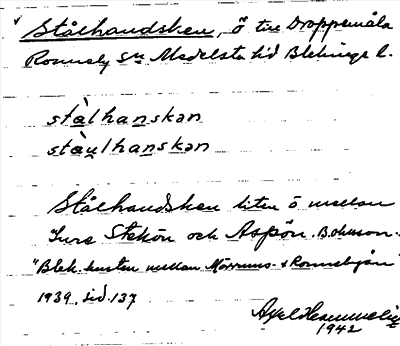 Stålhandsken, ö till Droppemåla
Ronneby sn Medelsta hd Blekinge l.
stàlhanskən
stàulhanskən
Stålhandsken liten ö mellan
Inre Stekön och Aspön. B. Ohsson.
"Blek. kusten mellan Mörrums- & Ronnebyån"
1939, sid. 137
Axel
1942